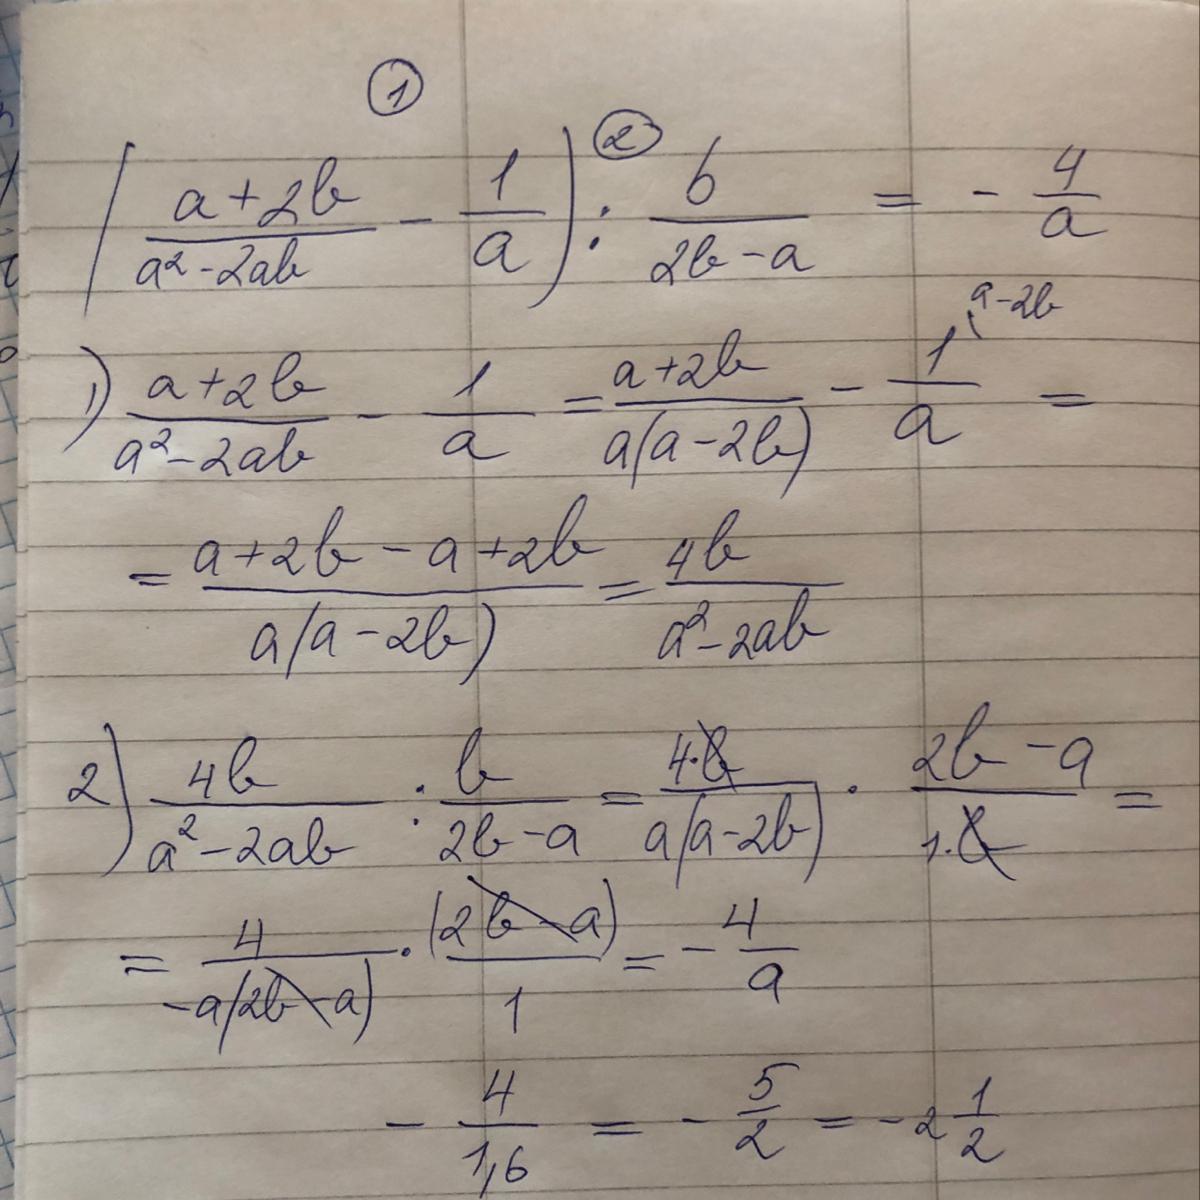 ① ②
(a+2b/a²-2ab - 1/a) : b/2b-a = - 4/a
1) a+2b/a²-2ab - 1/a = a+2b/a(a-2b) - 1\a-2b/a =
= a+2b-a+2b/a(a-2b) = 4b/a²-2ab
2) 4b/a²-2ab : b/2b-a = 4·b/a(a-2b) · 2b-a/1·b =
= 4/-a(2b-a) · (2b-a)/1 = - 4/a
- 4/1,6 = - 5/2 = - 2 1/2